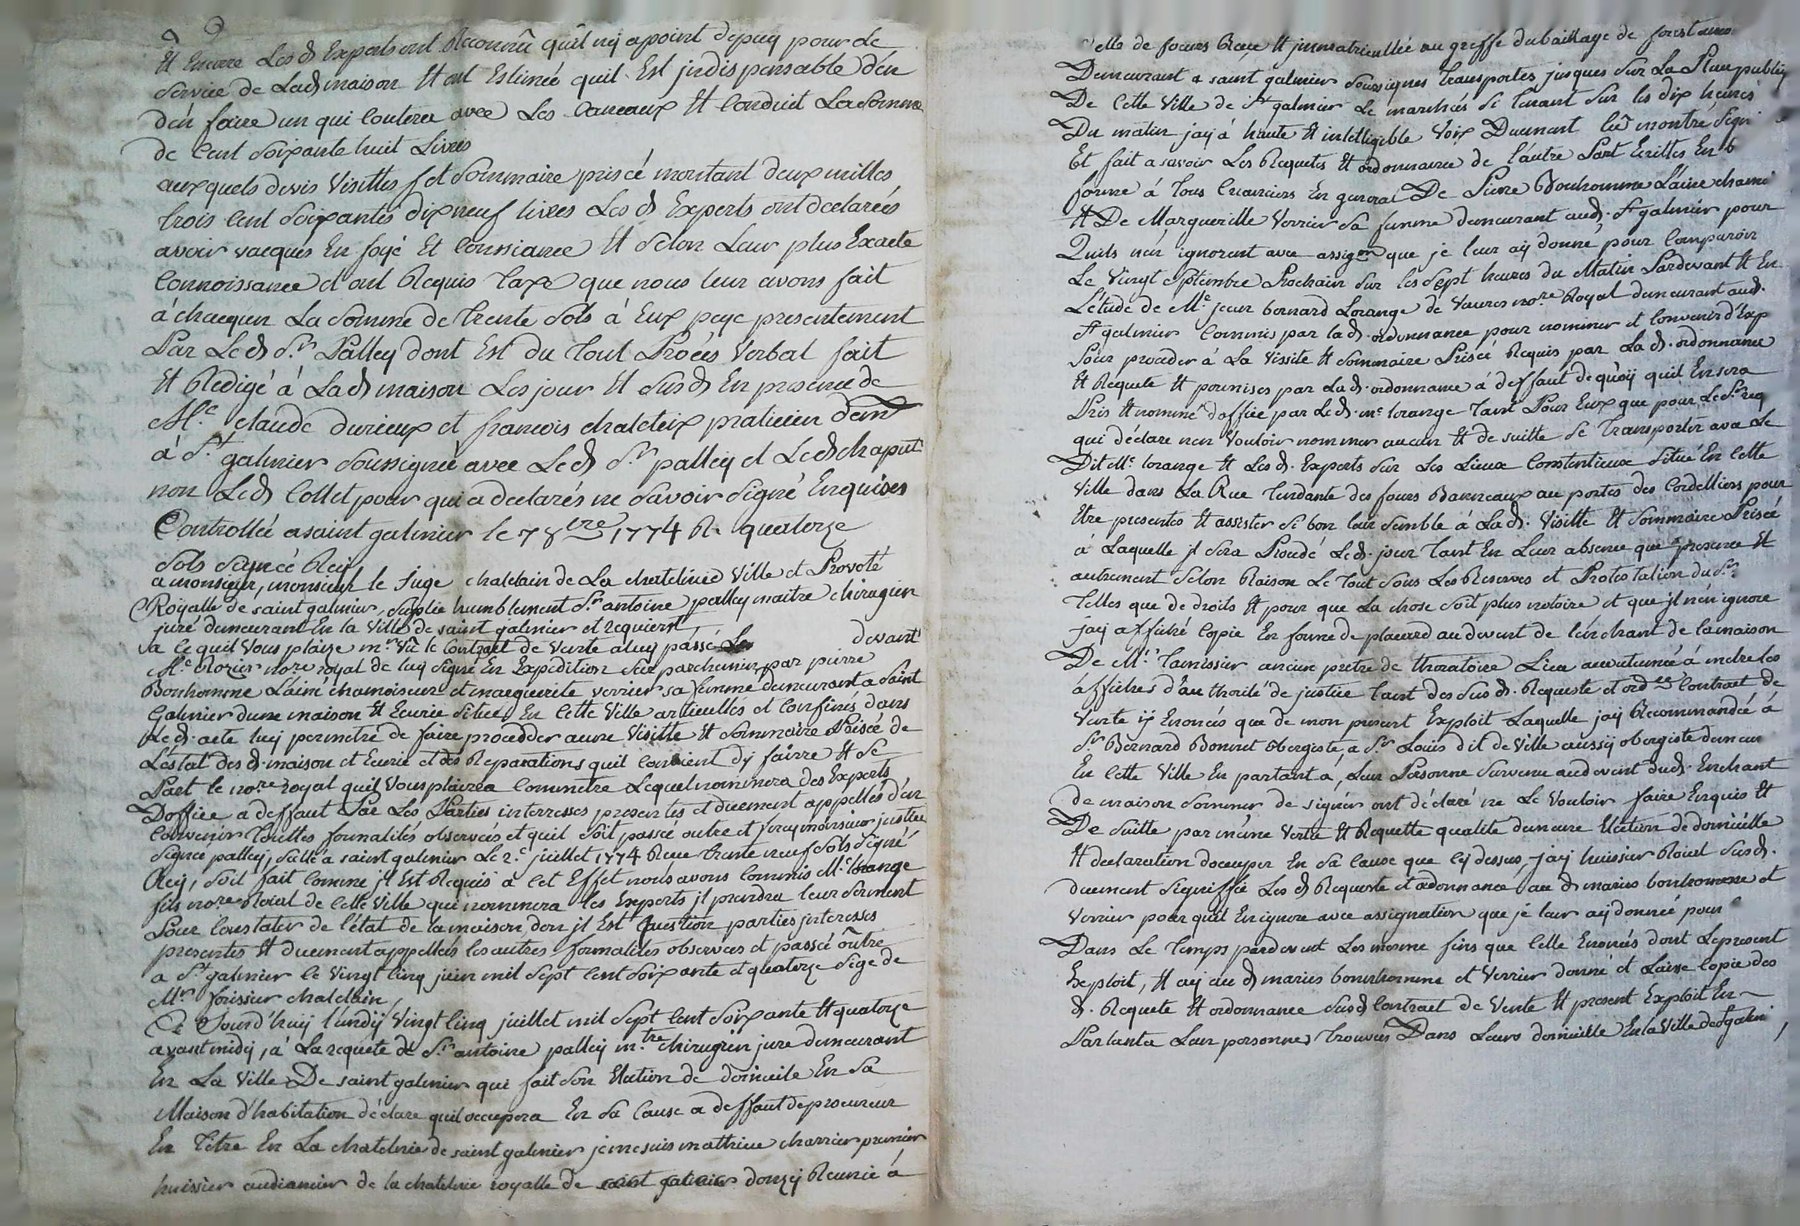 Et Encore Les d Experts ont Reconnu quil ny a point depuy pour Le
service de Lad maison Et ont Estimée quil Est jndispensable d'en
d'en faire un qui Coutera avec Les Carreaux Et Conduit La somme
de Cent soixante huit Livres
auxquels devis Visittes et sommaire prisé montant deux milles
trois Cent soixantes dix neuf livres Les d Experts ont declarés
avoir vacqués En foyé Et Consiance Et selon Leur plus Exacte
Connoissance et ont Requis Taxe que nous leur avons fait
à chacqun La somme de trente sols à Eux paye presentement
Par Led Sr Palley dont Est du tout Procès Verbal fait
Et Redigé à Lad maison Les jour Et susd En presence de
Me Claude Durieux et francois chalcleix praticien demt
à St galmier soussignée avec Led Sr palley et Led chaput
non Led Collet pour qui a declarés ne savoir signé Enquises
Controllée a saint galmier le 7 8bre 1774 R. quatorze
sols signé Rey
a monsieur, monsieur le Juge chatelain de La chatelnie Ville et Provoté
Royalle de saint galmier, suplie humblement Sr antoine palley maitre chirugien
juré demeurant En la Ville de saint galmier et requiert
sa ce quil Vous plaise mr Vu le Contract de Vente aluy passé devant
Me notre royal de luy signé En Expedition sur parchemin par pierre
Bonhomme L'ainé chamoiseur et marguerite verrier sa femme demeurant a saint
Galmier dune maison Et Ecurie situées En Cette Ville articulles et Confinés dans
Led. acte luy permettre de faire procedder a une Visitte Et sommaire Prisée de
L'Estat des d. maison et Ecurie et des Reparations quil Convient dy faire Et de
Part le notre royal quil Vous plairra Commettre Lequel nommera des Experts
Doffice a deffaut Par Les Parties interresses presentes et duement appellés d'en
Convenir touttes formalités observées et quil soit passé outre et ferez monsieur justice
signée palley, a saint galmier Le 2e juillet 1774 Recu trente neuf sols signé
Rey, soit fait Comme jl Est Requis a Cet Effet nous avons Commis Me lorange
fils notre Roial de Cette Ville qui nommera les Experts jl prendra leur serment
Pour Constater de l'état de la maison don jl Est Question parties jnteresses
presentes Et duement appellées les autres formalités observées et passé outre
a St galmier le Vingt Cinq juin mil sept Cent soixante et quatorze
Mr foissier chatelain,
Ce Jourd'huy lundy Vingt Cinq juillet mil sept Cent soixante Et quatorze
avant midy, a La requete de Sr antoine palley mtre chirugien jure demeurant
En La Ville De saint galmier qui fait son Election de domicile En sa
Maison d'habitation déclare quil occupera En sa Cause a deffaut de procureur
En titre En La chatelnie de saint galmier je me suis mathieu charrier premier
huissier audiancier de la chatelnie royalle de saint galmier donzy Reunie à
celle de feurs Recu Et jmmatriculléé au greffe du baillage de forest
Demeurant a saint galmier soussignes transportes jusques sur La Place publiq
De Cette Ville de St galmier Le marchés se tenant sur les dix heures
Du matin jay à haute Et intelligible Voix Duement lu montré, signi
Et fait a savoir Les Requetes Et ordonnance de l'autre Part Ecrittes En b
forme à tous Creanciers En general De Pierre Bonhomme L'aine chamoi
Et De Marguerille Verrier sa femme demeurant aud. St galmier pour
Quils nen ignorent avec assigon que je leur aÿ donné, pour Comparoir
Le Vingt septembre Prochain sur les sept heures du Matin Pardevant Et En
L'étude de Me jean bernard Lorange de Vaures notre Royal demeurant aud.
St galmier Commis par lad. ordonnance pour nommer et Convenir d'Exp
Pour proceder à La Vissite Et sommaire Prisée Requis par Lad. ordonnance
Et Requete Et permises par Lad. ordonnance à deffaut de quoÿ quil En sera
Pris Et nommé d'office par Led. me lorange tant Pour Eux que pour Le Sr req
qui déclare nen Vouloir nommer aucun Et de suitte se transporter avec Le
Dit Me lorange Et Les d. Experts sur Les Lieux Contentieux situé En Cette
Ville dans La Rue tendante des fours Banneaux au portes des Cordelliers pour
Etre presentes Et assister si bon leur semble à Lad. Visitte Et sommaire Prisée
à Laquelle jl sera Procdé Led. jour tant En Leur absence que presence Et
autrement selon Raison Le tout sous Les Reserves et Protestation du Sr
telles que de droits Et pour que La chose soit plus notoire et que jl nen ignore
jay affiché Copie En forme de placard au devant de l'enchant de la maison
De Mr tamissier ancien pretre de Lieu accoutumée à metre les
affiches d'authorité de justice tant des susd. Requete et ordce Contract de
Vente ÿ Enoncés que de mon present Exploit Laquelle jay Recommandée à
Sr Bernard Bonnet obergiste, a Sr Louis dit de Ville aussÿ obergiste demeur
En Cette Ville En partant à, Leur Personne survenu audevant dud. Enchant
de maison sommer de signer ont déclaré ne Le Vouloir faire Enquis Et
De suitte par même Vertu Et Requette qualite demeure Election de domicille
Et declaration doccuper En sa Cause que cy dessus, jay huissier Roial susd.
duement signiffié Les d Requete et ordonnance au d maries bonhomme et
Verrier pour quil En ignore avec assignation que je leur aÿ donnée pour
Dans Le temps pardevant Les meme fins que Celle Enoncés dont Le present
Exploit, Et aÿ au d maries bonnhomme et Verrier donné et Laisse Copie des
d. Requete Et ordonnance susd Contract de Vente Et present Exploit En
Parlant a Leur personnes trouvées Dans Leurs domicille En la Ville de St galmi